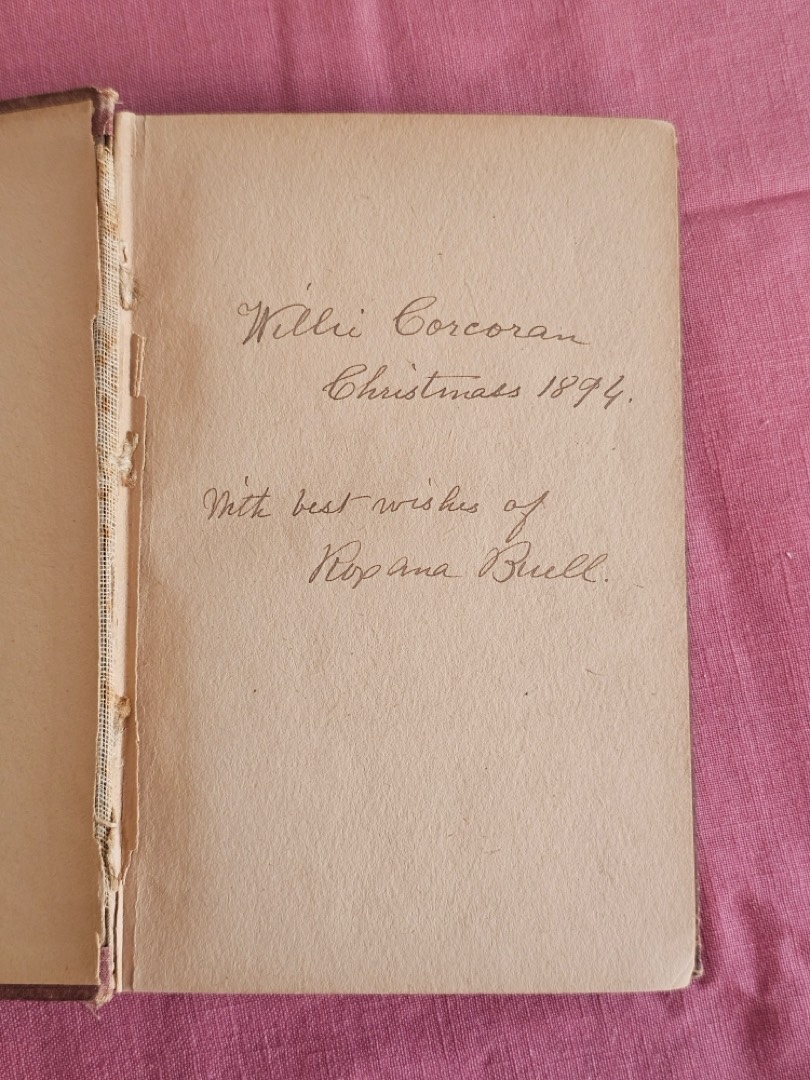 Willie Corcoran
Christmass 1894.
With best wishes of
Roxana Buell.